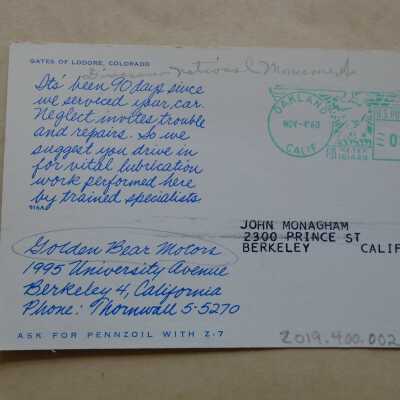 GATES OF LODORE, COLORADO
Dinosaur National Monument
Its' been 90 days since
we serviced your car.
Neglect invites trouble
and repairs. So we
suggest you drive in
for vital lubrication
work performed here
by trained specialists.
916A
Golden Bear Motors
1995 University Avenue
Berkeley 4, California
Phone: Thornwall 5-5270
ASK FOR PENNZOIL WITH Z-7
OAKLAND
NOV-4'60
CALIF
U.S. PO
JOHN MONAGHAM
2300 PRINCE ST
BERKELEY CALIF
2019.400.002